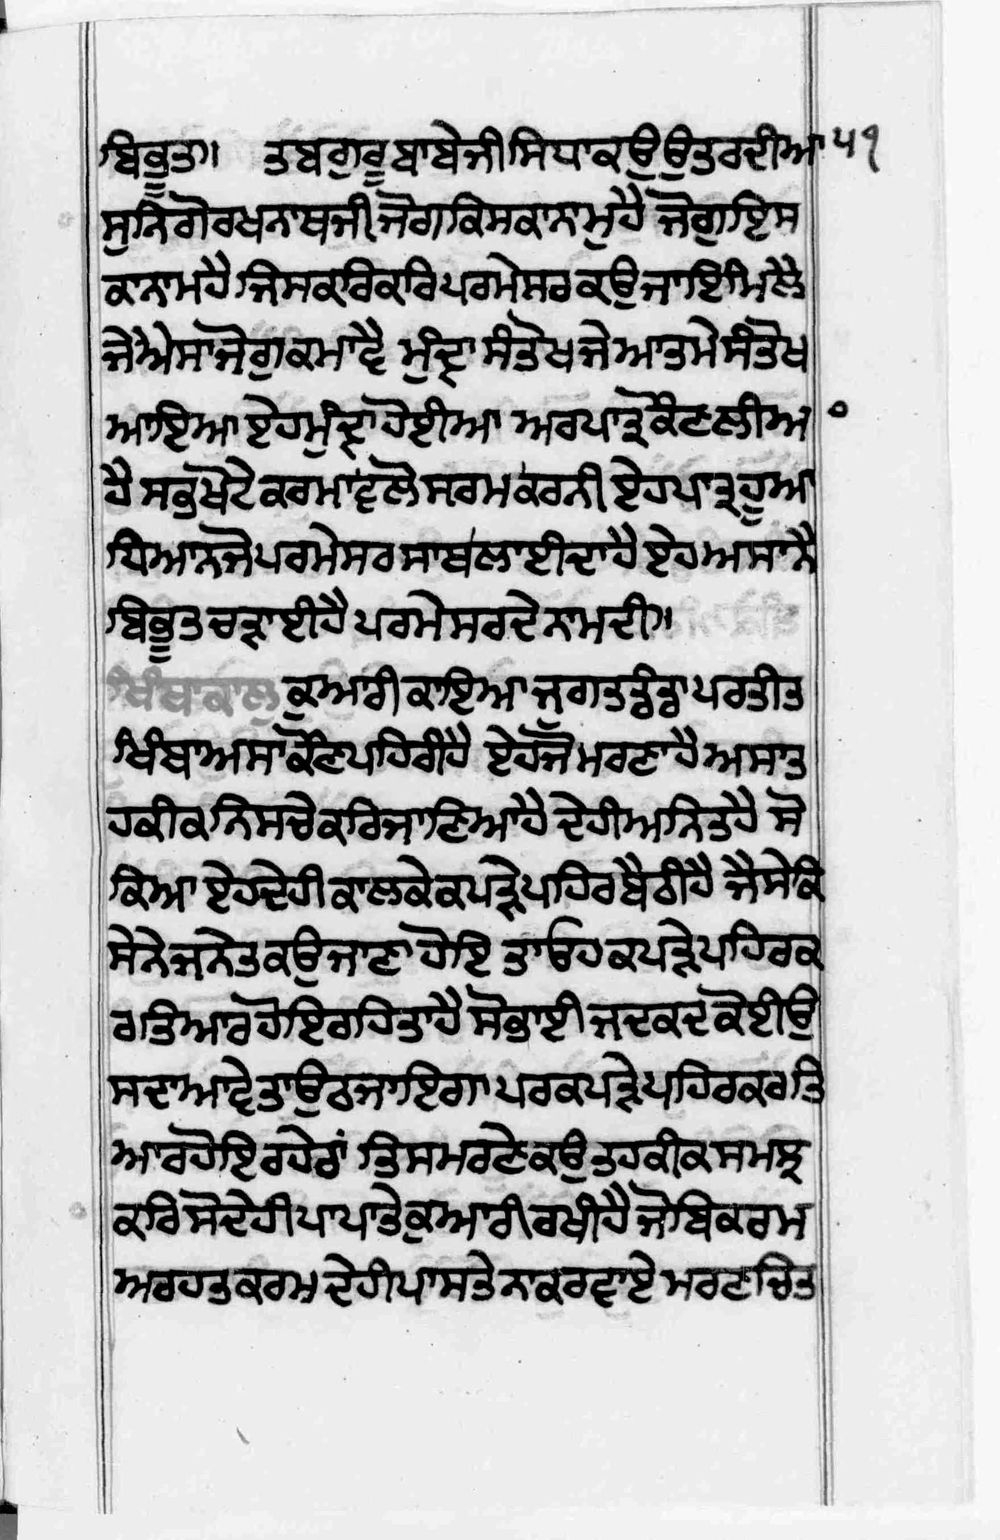 ਬਿਭੂਤ॥ ਤਬ ਗੁਰੂ ਬਾਬੇ ਜੀ ਸਿਧਾ ਕਉ ਉਤਰ ਦੀਆ ੫੧
ਸੁਨਿ ਗੋਰਖਨਾਥ ਜੀ ਜੋਗ ਕਿਸ ਕਾ ਨਾਮੁ ਹੈ ਜੋਗੁ ਇਸ
ਕਾ ਨਾਮ ਹੈ ਜਿਸ ਕਰਿ ਕਰਿ ਪਰਮੇਸਰ ਕਉ ਜਾਇ ਮਿਲੈ
ਜੇ ਐਸਾ ਜੋਗੁ ਕਮਾਵੈ ਮੁੰਦ੍ਰਾ ਸੰਤੋਖ ਜੇ ਆਤਮੇ ਸੰਤੋਖ
ਆਇਆ ਏਹ ਮੁੰਦ੍ਰਾ ਹੋਈਆ ਅਰ ਪਾਤ੍ਰ ਕੌਣ ਲੀਅ
ਹੈ ਸਭੁ ਖੋਟੇ ਕਰਮਾ ਵਲੋ ਸਰਮ ਕਰਨੀ ਏਹ ਪਾਤ੍ਰ ਹੂਆ
ਧਿਆਨ ਜੋ ਪਰਮੇਸਰ ਸਾਥ ਲਾਈਦਾ ਹੈ ਏਹ ਅਸਾਨੈ
ਬਿਭੂਤ ਚੜਾਈ ਹੈ ਪਰਮੇਸਰ ਦੇ ਨਾਮ ਦੀ॥
ਖਿੰਥਾ ਕਾਲੁ ਕੁਆਰੀ ਕਾਇਆ ਜੁਗਤ ਡੰਡਾ ਪਰਤੀਤ
ਖਿੰਥਾ ਅਸਾ ਕੌਣ ਪਹਿਰੀ ਹੈ ਏਹ ਜੋ ਮਰਣਾ ਹੈ ਅਸਾ ਤ
ਹਕੀਕ ਨਿਸਚੇ ਕਰਿ ਜਾਣਿਆ ਹੈ ਦੇਹੀ ਅਨਿਤ ਹੈ ਸੋ
ਕਿਆ ਏਹ ਦੇਹੀ ਕਾਲ ਕੇ ਕਪੜੇ ਪਹਿਰ ਬੈਠੀ ਹੈ ਜੈਸੇ ਕਿ
ਸੇ ਨੇ ਜਨੇਤ ਕਉ ਜਾਣਾ ਹੋਇ ਤਾ ਓਹ ਕਪੜੇ ਪਹਿਰ ਕ
ਰ ਤਿਆਰ ਹੋਇ ਰਹਿਤਾ ਹੈ ਸੋ ਭਾਈ ਜਦ ਕਦ ਕੋਈ ਉ
ਸਦਾ ਆਵੇ ਤਾ ਉਠ ਜਾਇਗਾ ਪਰ ਕਪੜੇ ਪਹਿਰ ਕਰ ਤਿ
ਆਰ ਹੋਇ ਰਹੇਗਾਂ ਤਿਸ ਮਰਣੇ ਕਉ ਤਹਕੀਕ ਸਮਝ
ਕਰਿ ਸੋ ਦੇਹੀ ਪਾਪਾ ਤੇ ਕੁਆਰੀ ਰਖੀ ਹੈ ਜੋ ਬਿਕਰਮ
ਅਰ ਹਤ ਕਰਮ ਦੇਹੀ ਪਾਸ ਤੇ ਨਾ ਕਰਵਾਏ ਮਰਣ ਚਿਤ